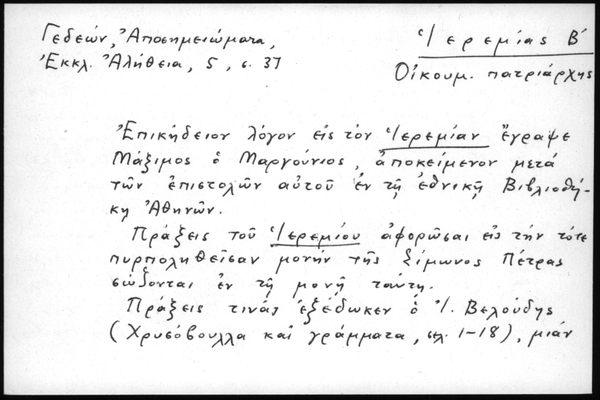 Γεδεών, Ἀποσημειώματα,
Ἐκκλ. Ἀλήθεια, 5, σ. 37
Ἱερεμίας Βʹ
Οἰκουμ. πατριάρχης
Ἐπικήδειον λόγον εἰς τὸν Ἱερεμίαν ἔγραψε
Μάξιμος ὁ Μαργούνιος, ἀποκείμενον μετὰ
τῶν ἐπιστολῶν αὐτοῦ ἐν τῇ ἐθνικῇ Βιβλιοθή-
κῃ Ἀθηνῶν.
Πράξεις τοῦ Ἱερεμίου ἀφορῶσαι εἰς τὴν τότε
πυρποληθεῖσαν μονὴν τῆς Σίμωνος Πέτρας
σῴζονται ἐν τῇ μονῇ ταύτῃ.
Πράξεις τινὰς ἐξέδωκεν ὁ Ἰ. Βελούδης
(Χρυσόβουλλα καὶ γράμματα, σελ. 1-18), μιάν